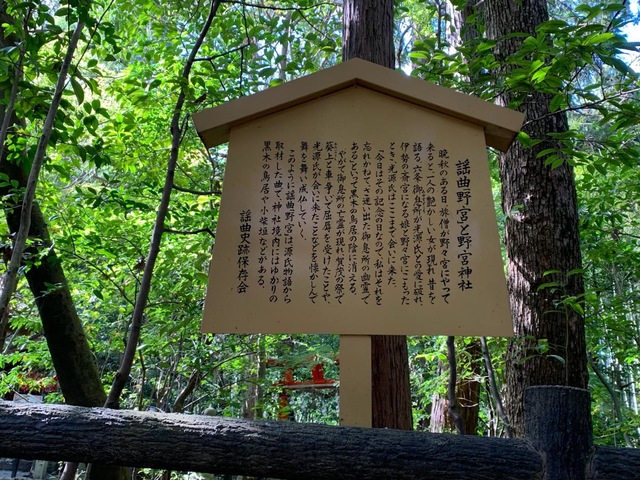 謡曲「野宮」と野宮神社
晩秋のある日、旅僧が野々宮にやって
来ると、一人の艶かしい女が現れ、昔を
語る。六条御息所が光源氏との愛に破れ、
伊勢の斎宮になる娘と野々宮にこもった
ところ、光源氏はここまで会いに来た。
「今日はその記念の日なので、私はそれを
忘れかねてさ迷い出た御息所の幽霊で
ある」といって黒木の鳥居の陰に消える。
やがて御息所の亡霊が現れ、賀茂の祭で
葵上と車争いで屈辱を受けたことや、
光源氏が会いに来たことなどを懐かしんで
舞を舞い、成仏していく。
このように謡曲「野宮」は源氏物語から
取材した曲で、神社境内にはゆかりの
黒木の鳥居や小柴垣などがある。
謡曲史跡保存会